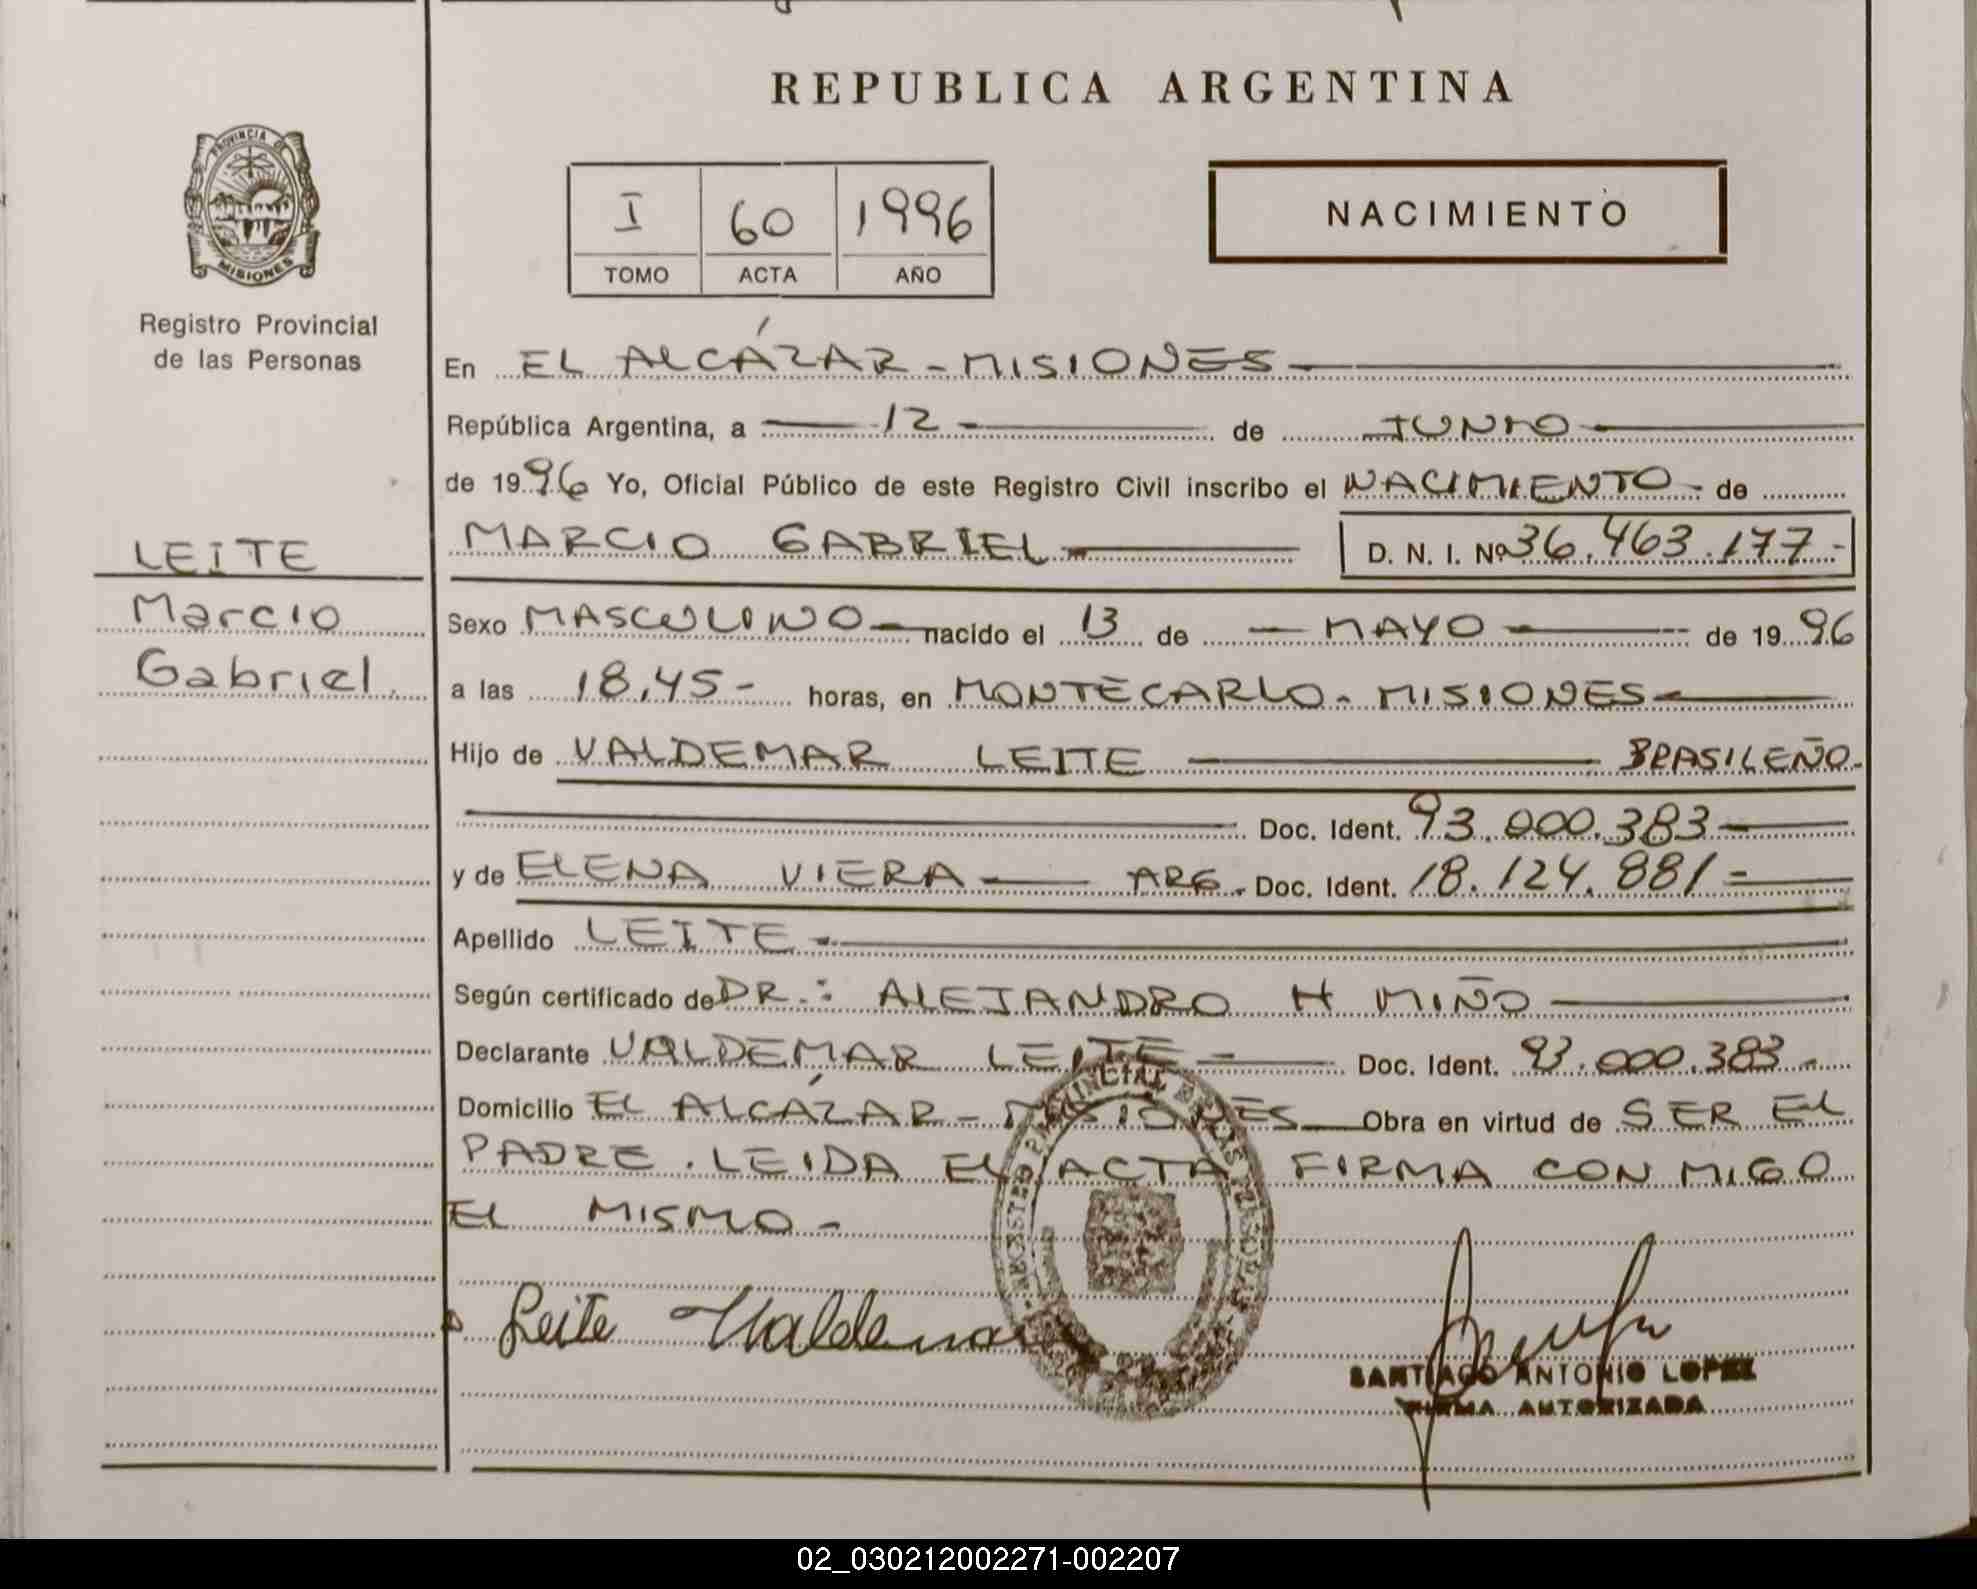 REPUBLICA ARGENTINA
PROVINCIA DE
MISIONES
Registro Provincial
de las Personas
I 60 1996
TOMO ACTA AÑO
NACIMIENTO
En EL ALCÁZAR - MISIONES
República Argentina, a 12 de JUNIO
de 1996 Yo, Oficial Público de este Registro Civil inscribo el NACIMIENTO - de
LEITE
MARCIO GABRIEL D. N. I. Nº 36.463.177 -
Marcio
Gabriel.
Sexo MASCULINO nacido el 13 de MAYO de 1996
a las 18,45 - horas, en MONTECARLO - MISIONES
Hijo de VALDEMAR LEITE BRASILEÑO -
Doc. Ident. 93.000.383
y de ELENA VIERA ARG. Doc. Ident. 18.124.881 -
Apellido LEITE -
Según certificado de DR.: ALEJANDRO H MIÑO
Declarante VALDEMAR LEITE - Doc. Ident. 93.000.383 -
Domicilio EL ALCÁZAR - MISIONES Obra en virtud de SER EL
PADRE. LEIDA EL ACTA FIRMA CON MIGO
EL MISMO -
Leite Valdemar
SANTIAGO ANTONIO LOPEZ
FIRMA AUTORIZADA
02_030212002271-002207